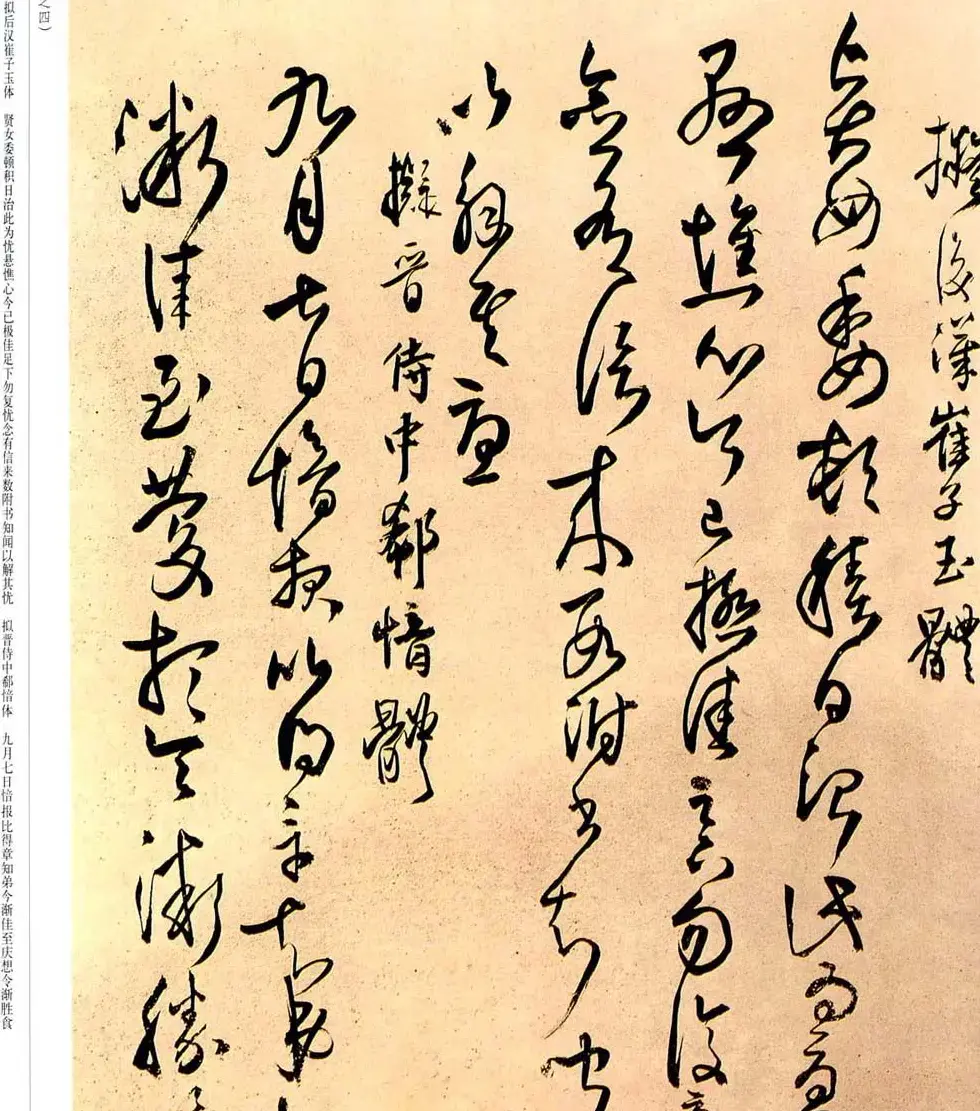 擬後漢崔子玉體
賢女委頓積日治此為憂
懸憔心今已極佳足下勿復
念有信來數附書知聞
以解其憂
擬晉侍中郗愔體
九月七日愔報比得章知弟
漸佳至慶想今漸勝
之四）
拟后汉崔子玉体 贤女委顿积日治此为忧悬憔心今已极佳足下勿复忧念有信来数附书知闻以解其忧 拟晋侍中郗愔体 九月七日愔报比得章知弟今渐佳至庆想今渐胜食